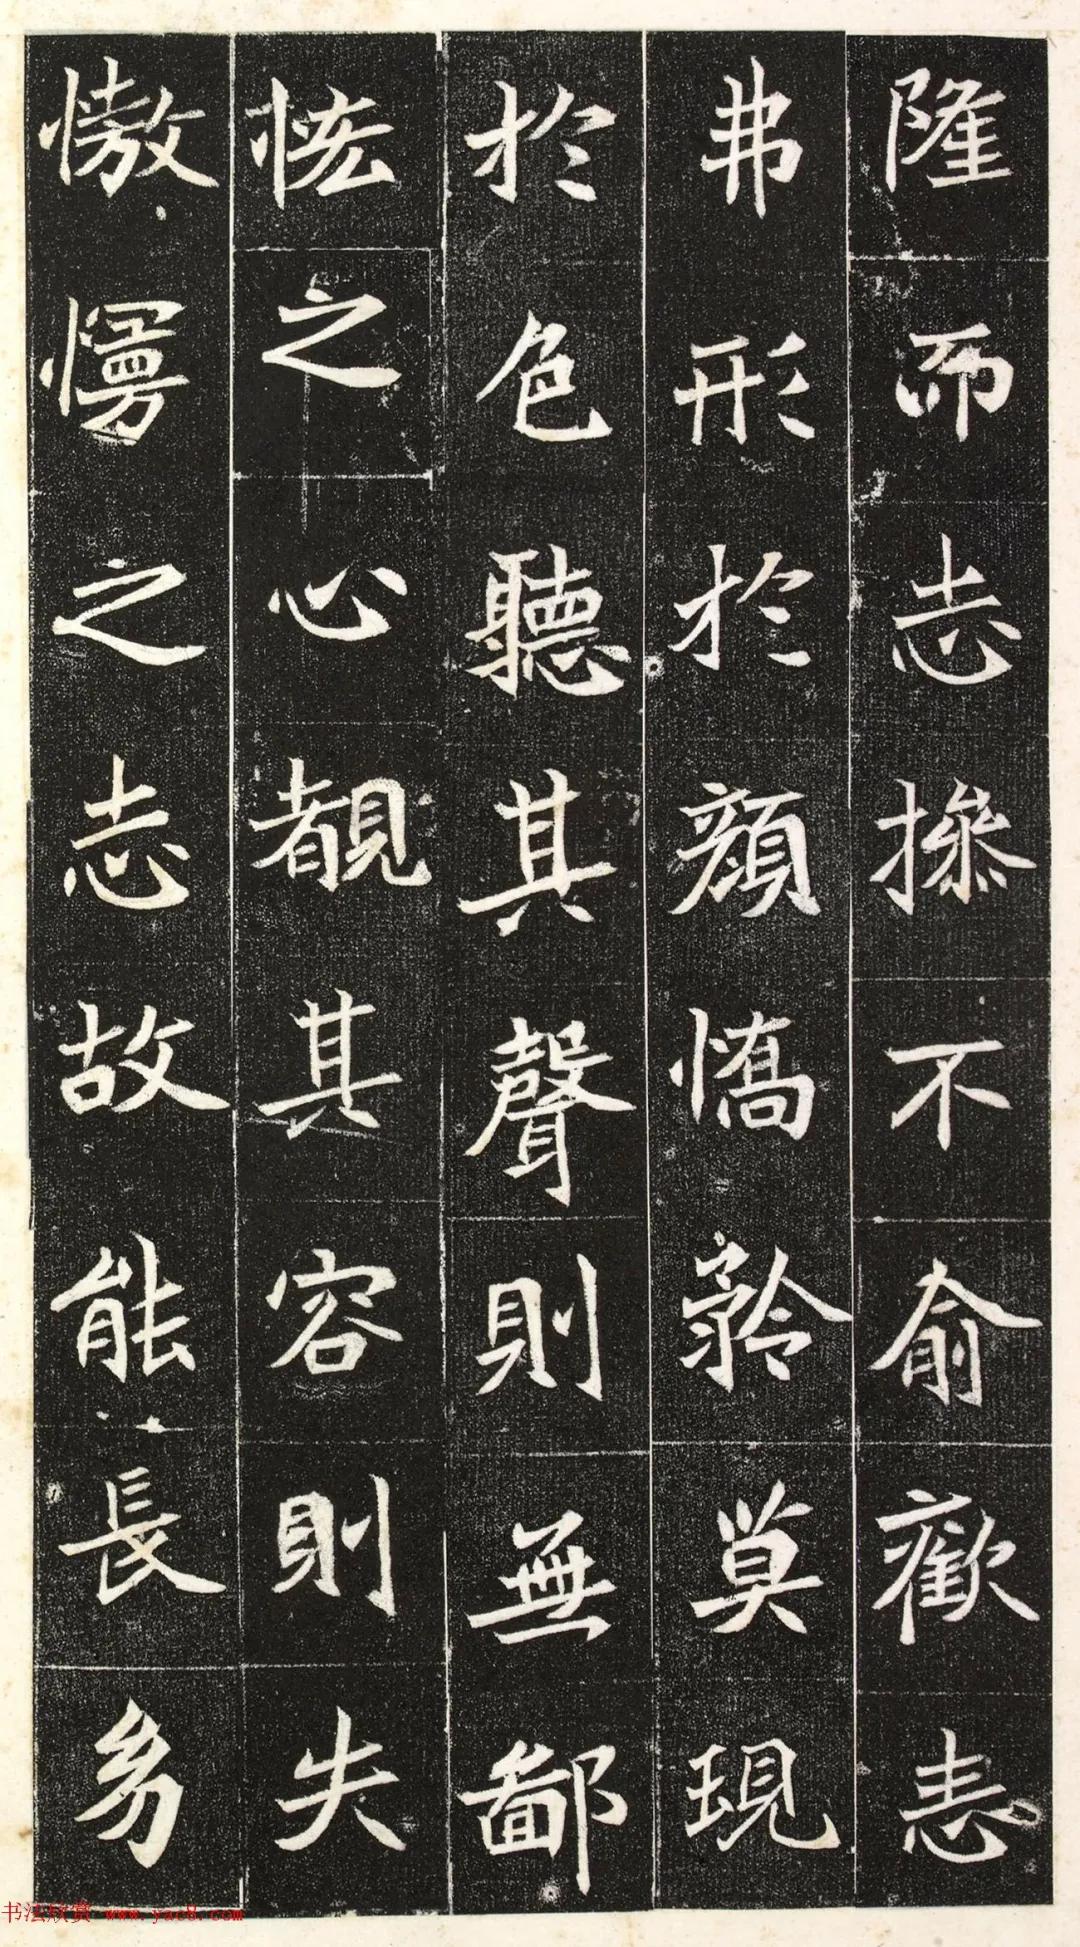 隆而志操不俞歡恚
弗形於顏憍矜莫現
於色聽其聲則無鄙
恡之心覩其容則失
慠慢之志故能長㓜
书法欣赏 www.yac8.com